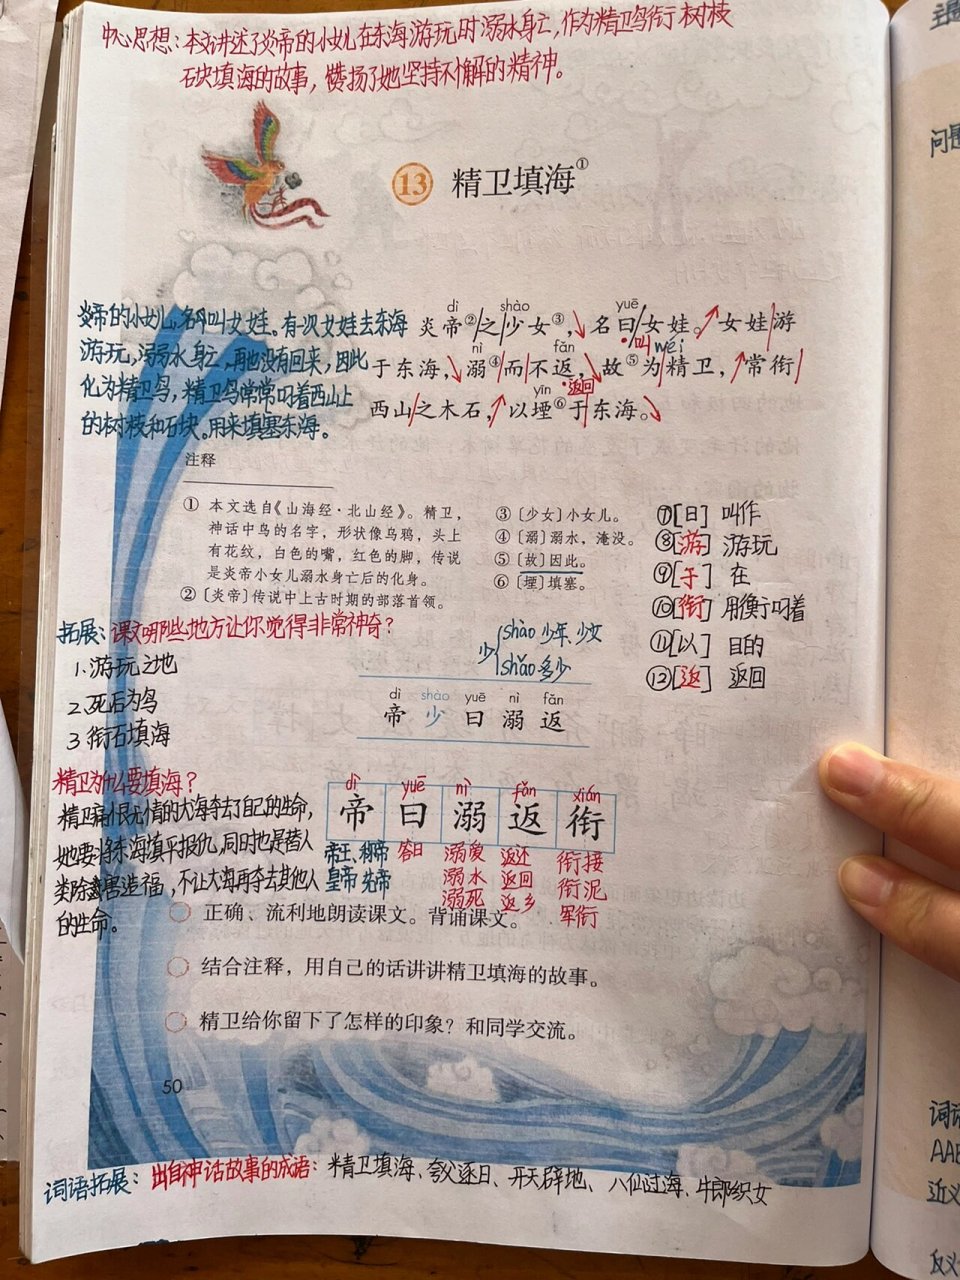 中心思想:本文讲述了炎帝的小女儿在东海游玩时溺水身亡,作为精卫鸟衔树枝
石块填海的故事,赞扬了她坚持不懈的精神。
13 精卫填海①
dì shào yuē
炎帝②/之/少女③,↘名曰/女娃。↗女娃/游
·叫 wéi
nì fǎn
于东海,↘溺④/而/不返,↘故⑤为/精卫,↗常衔/
yīn ·返回
西山/之木石,↗以堙⑥于/东海。↘
炎帝的小女儿,名叫女娃。有一次女娃去东海
游玩,溺水身亡,再也没有回来,因此
化为精卫鸟,精卫鸟常常叼着西山上
的树枝和石块。用来填塞东海。
注释
① 本文选自《山海经·北山经》。精卫,
神话中鸟的名字,形状像乌鸦,头上
有花纹,白色的嘴,红色的脚,传说
是炎帝小女儿溺水身亡后的化身。
② 〔炎帝〕传说中上古时期的部落首领。
③ 〔少女〕小女儿。
④ 〔溺〕溺水,淹没。
⑤ 〔故〕因此。
⑥ 〔堙〕填塞。
⑦[曰] 叫作
⑧[游] 游玩
⑨[于] 在
⑩[衔] 用嘴叼着
⑪[以] 目的
⑫[返] 返回
拓展:课文哪些地方让你觉得非常神奇?
1.游玩之地
2.死后为鸟
3 衔石填海
少 shào 少年、少女
shǎo 多少
dì shào yuē nì fǎn
帝 少 曰 溺 返
精卫为什么要填海?
精卫痛恨无情的大海夺去了自己的生命,
她要将东海填平报仇,同时也是替人
类除害造福,不让大海再夺去其他人
的生命。
dì yuē nì fǎn xián
帝 曰 溺 返 衔
帝王、称帝 溺爱 返还 衔接
皇帝 先帝 溺水 返回 衔泥
溺死 返乡 军衔
正确、流利地朗读课文。背诵课文。
结合注释,用自己的话讲讲精卫填海的故事。
精卫给你留下了怎样的印象?和同学交流。
50
词语拓展:出自神话故事的成语:精卫填海、夸父逐日、开天辟地、八仙过海、牛郎织女
问题
词语
AAB
近义
反义